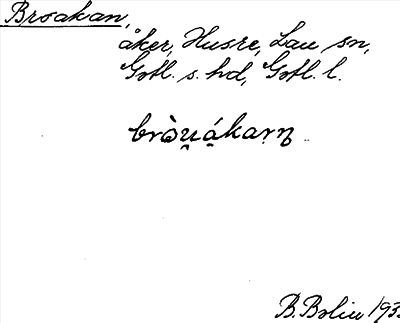 Broakan,
åker, Husre, Lau sn,
Gotl. s. hd, Gotl. l.
bròu̯á̤kaṛn
B. Bolin 193